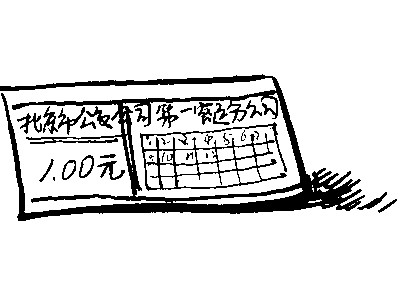 北京市公交公司第一客运分公司
1.00元
1 2 3 4 5 6 7
9 10 11 12